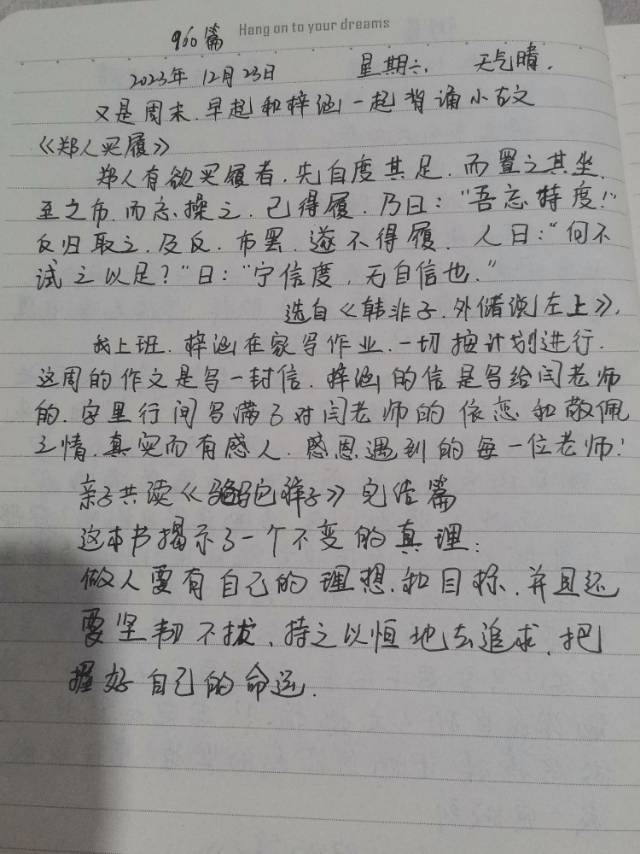 Hang on to your dreams
960篇
2023年12月23日 星期六. 天气晴.
又是周末.早起和梓涵一起背诵小古文
《郑人买履》
郑人有欲买履者.先自度其足.而置之其坐.
至之市.而忘操之.已得履.乃曰："吾忘持度!"
反归取之.及反.市罢.遂不得履.人曰："何不
试之以足?"曰："宁信度,无自信也."
选自《韩非子.外储说左上》.
我上班.梓涵在家写作业.一切按计划进行.
这周的作文是写一封信.梓涵的信是写给闫老师
的.字里行间写满了对闫老师的依恋和敬佩
之情.真实而有感人.感恩遇到的每一位老师!
亲子共读《骆驼祥子》完结篇
这本书揭示了一个不变的真理:
做人要有自己的理想.和目标.并且还
要坚韧不拔、持之以恒地去追求.把
握好自己的命运.